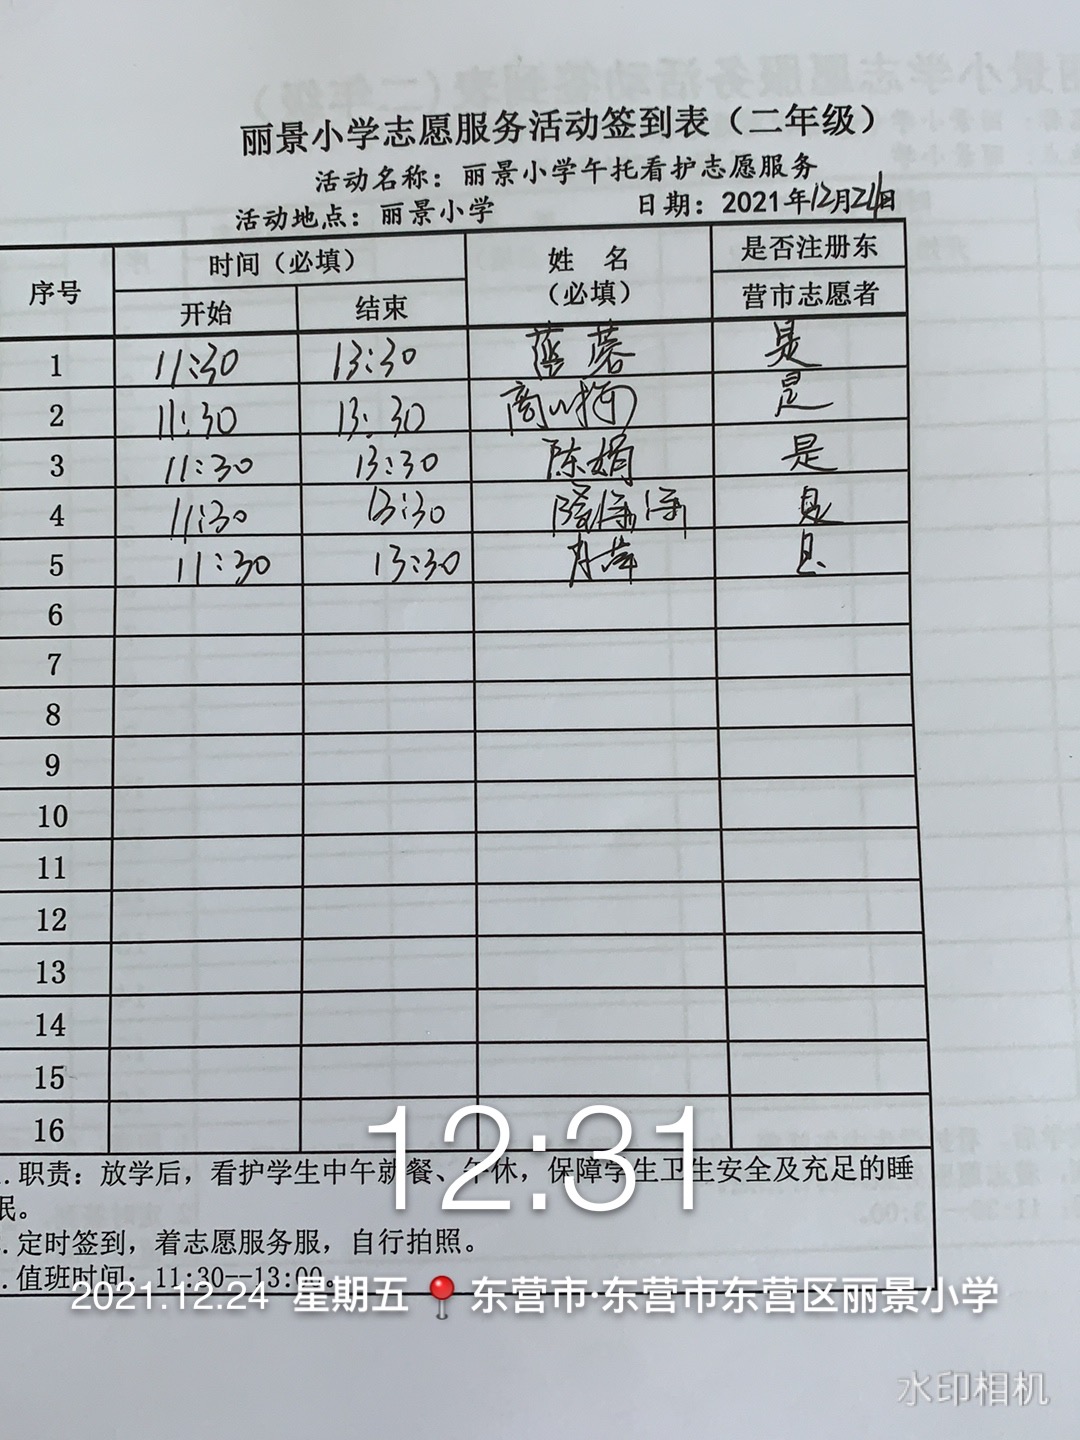 丽景小学志愿服务活动签到表（二年级）
活动名称：丽景小学午托看护志愿服务
活动地点：丽景小学 日期：2021年12月24日
序号 时间（必填） 姓 名（必填） 是否注册东营市志愿者
开始 结束
1 11:30 13:30 是
2 11:30 13:30 是
3 11:30 13:30 陈娟 是
4 11:30 13:30 是
5 11:30 13:30 是
6
7
8
9
10
11
12
13
14
15
16
.职责：放学后，看护学生中午就餐、午休，保障学生卫生安全及充足的睡
眠。
.定时签到，着志愿服务服，自行拍照。
.值班时间：11:30--13:00。
12:31
2021.12.24 星期五 东营市·东营市东营区丽景小学
水印相机